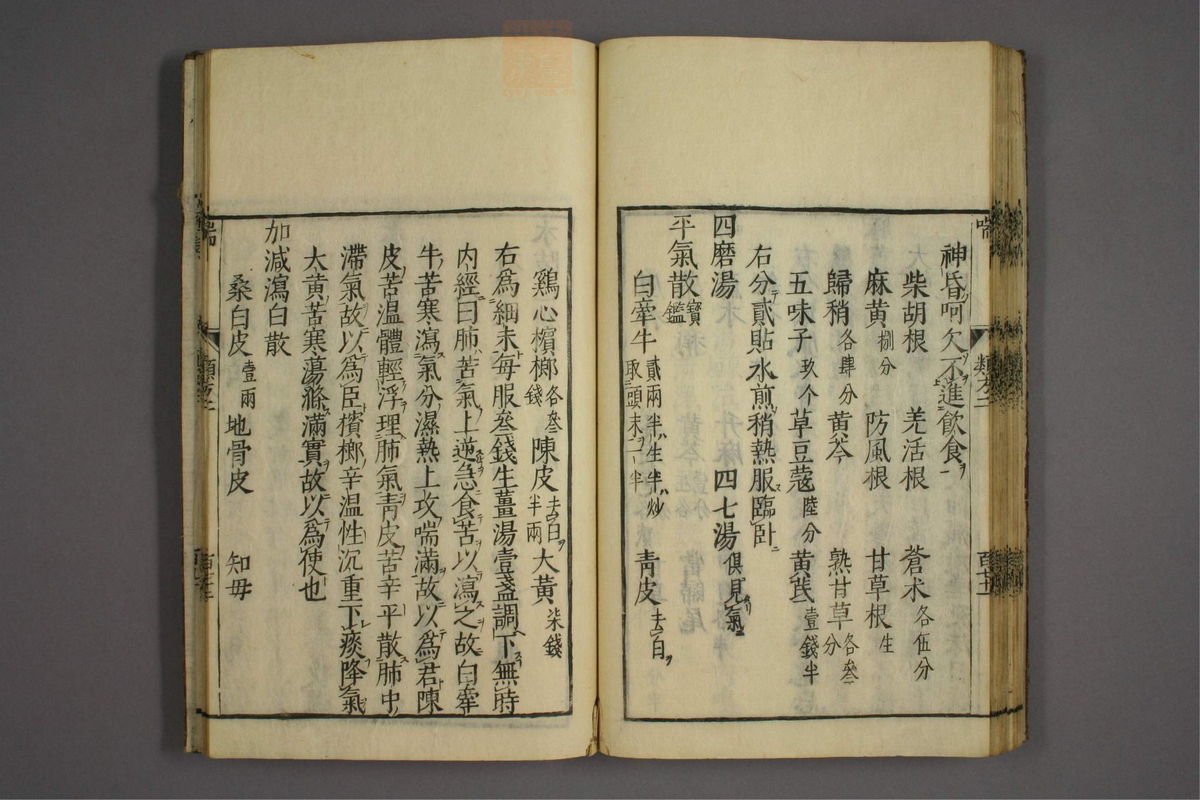 神昏呵欠不進飲食
柴胡根 羌活根 蒼朮各伍分
麻黄捌分 防風根 甘草根生
歸稍各肆分 黄芩 熟甘草各叁分
五味子玖个 草豆蔻陸分 黄芪壹錢半
右分貳貼水煎稍熱服臨卧
四磨湯 四七湯俱見氣
平氣散寶鑑
白牽牛貳兩半半生半炒取頭末一半 青皮去白
鷄心檳榔各叁錢 陳皮去白半兩 大黄柒錢
右爲細末每服叁錢生薑湯壹盞調下無時
内經曰肺苦氣上逆急食苦以瀉之故白牽
牛苦寒瀉氣分濕熱上攻喘滿故以爲君陳
皮苦温體輕浮理肺氣青皮苦辛平散肺中
滯氣故以爲臣檳榔辛温性沉重下痰降氣
大黄苦寒蕩滌滿實故以爲使也
加減瀉白散
桑白皮壹兩 地骨皮 知母
喘 類方二